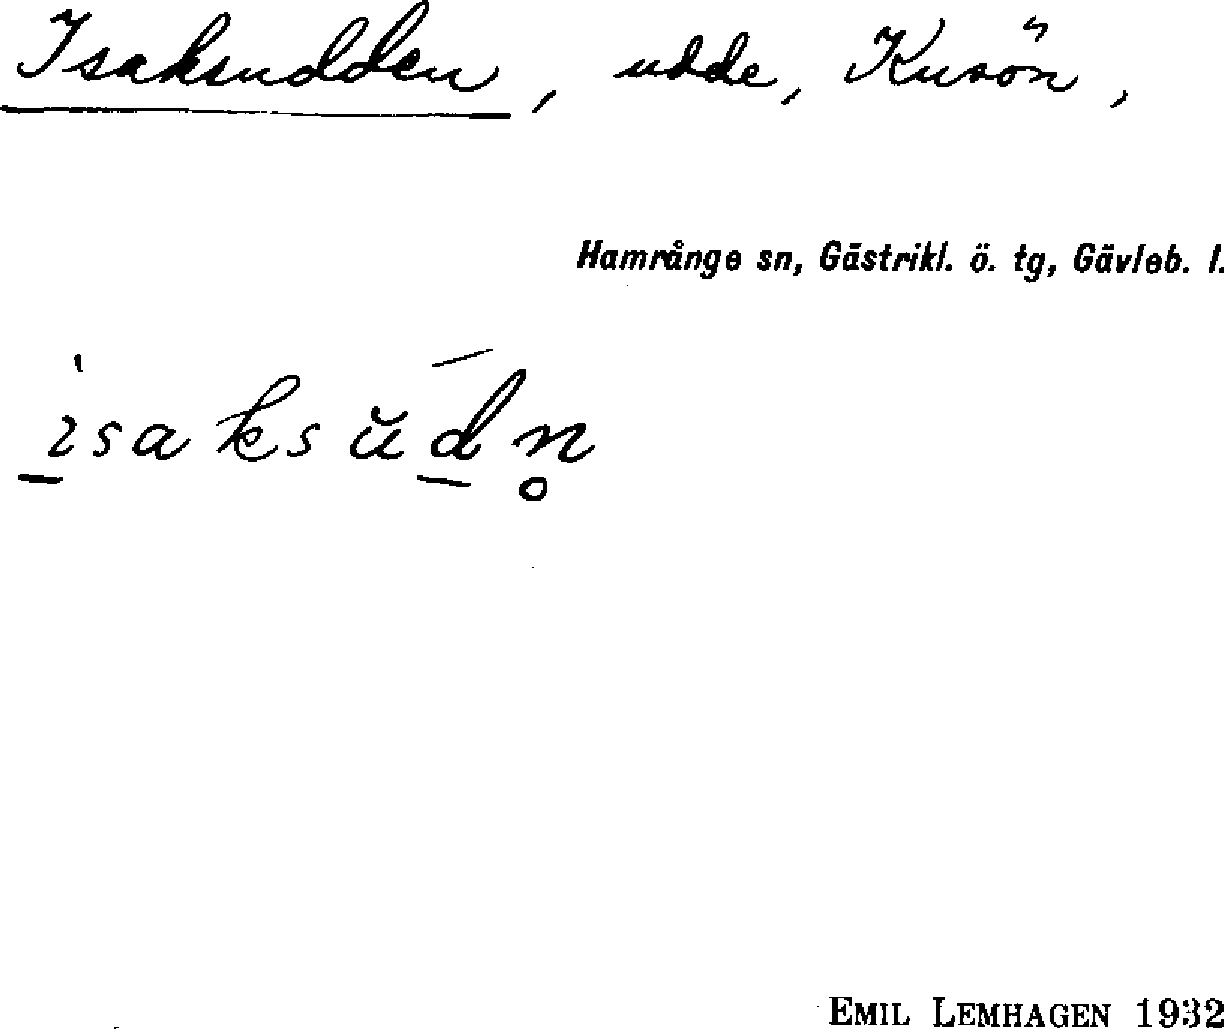 Isaksudden, udde, Kusön,
Hamrånge sn, Gästrikl. ö. tg, Gävleb. l.
ìsaksŭd́n̥
EMIL LEMHAGEN 1932